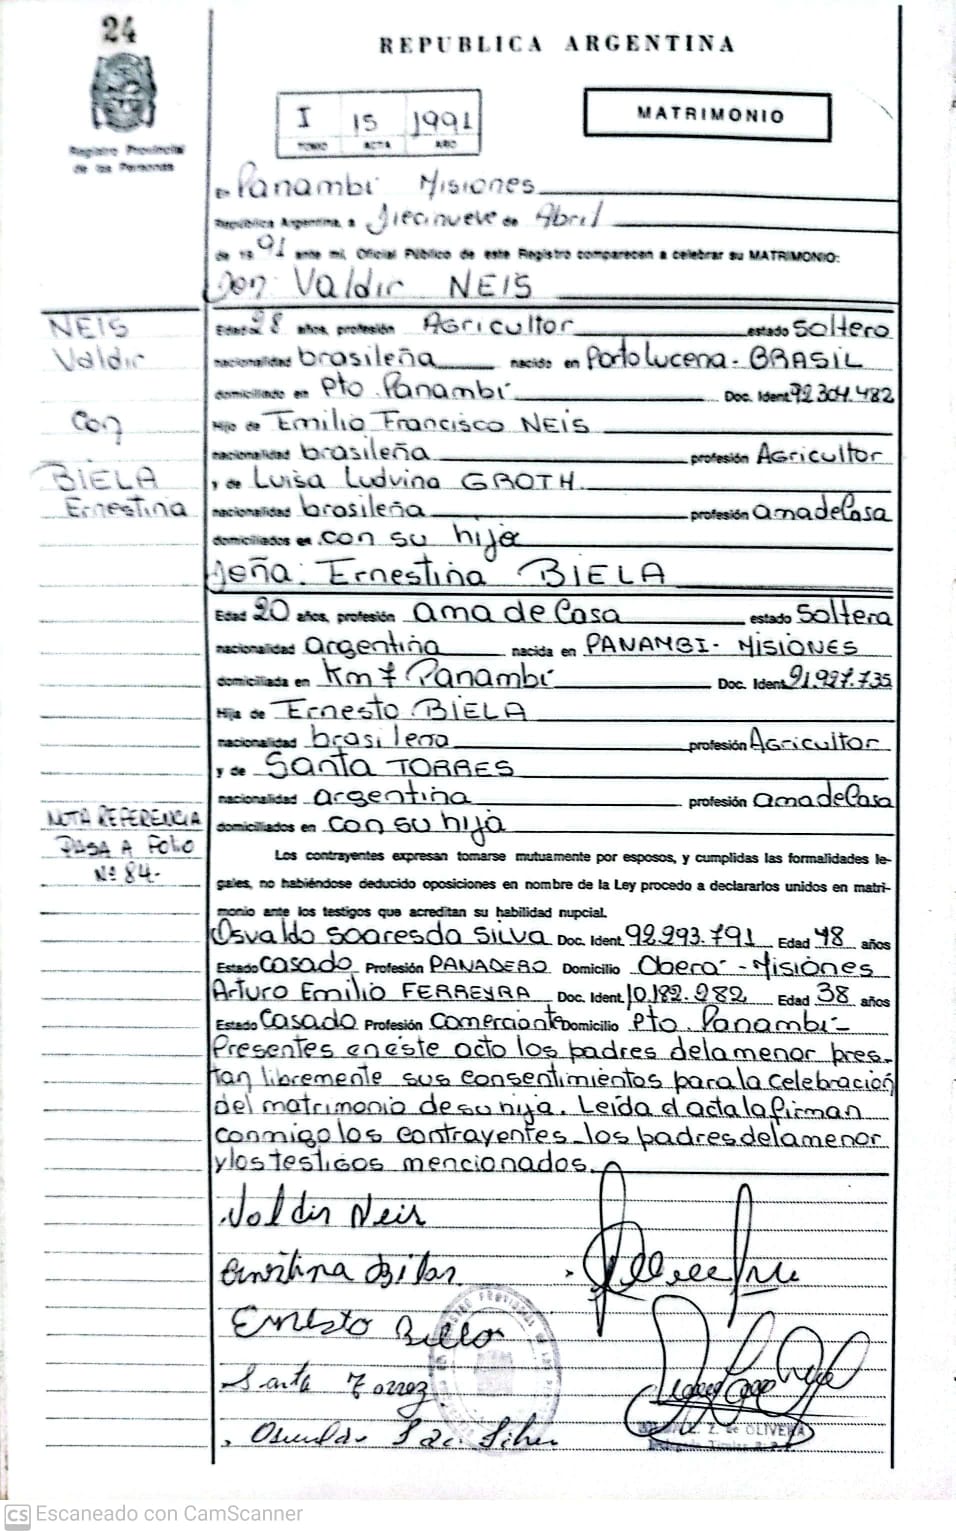 24
REPUBLICA ARGENTINA
Registro Provincial
de las Personas
I 15 1991
TOMO ACTA AÑO
MATRIMONIO
En Panambí Misiones
República Argentina, a Diecinueve de Abril
de 19 91 ante mí, Oficial Público de este Registro comparecen a celebrar su MATRIMONIO:
Don: Valdir NEIS
NEIS
Valdir
Con
BIELA
Ernestina
Edad 28 años, profesión Agricultor estado Soltero
nacionalidad brasileña nacido en Porto Lucena - BRASIL
domiciliado en Pto. Panambí Doc. Ident. 92.304.482
Hijo de Emilio Francisco NEIS
nacionalidad brasileña profesión Agricultor
y de Luisa Ludvina GROTH
nacionalidad brasileña profesión ama de Casa
domiciliados en con su hija
Doña: Ernestina BIELA
Edad 20 años, profesión ama de Casa estado Soltera
nacionalidad argentina nacida en PANAMBI - MISIONES
domiciliada en Km 7 Panambí Doc. Ident. 21.927.735
Hija de Ernesto BIELA
nacionalidad brasilera profesión Agricultor
y de Santa TORRES
nacionalidad argentina profesión ama de Casa
domiciliados en con su hija
NOTA REFERENCIA
PASA A FOLIO
Nº 84-
Los contrayentes expresan tomarse mutuamente por esposos, y cumplidas las formalidades le-
gales, no habiéndose deducido oposiciones en nombre de la Ley procedo a declararlos unidos en matri-
monio ante los testigos que acreditan su habilidad nupcial.
Osvaldo Soares da Silva Doc. Ident. 92.293.791 Edad 48 años
Estado Casado Profesión PANADERO Domicilio Oberá - Misiones
Arturo Emilio FERREYRA Doc. Ident. 10.182.282 Edad 38 años
Estado Casado Profesión Comerciante Domicilio Pto. Panambí -
Presentes en este acto los padres de la menor pres-
tan libremente sus consentimientos para la celebración
del matrimonio de su hija. Leída el acta la firman
conmigo los contrayentes los padres de la menor
y los testigos mencionados.
Valdir Neis
Ernesto
Santa Torrez
Z. de OLIVERA
CS Escaneado con CamScanner